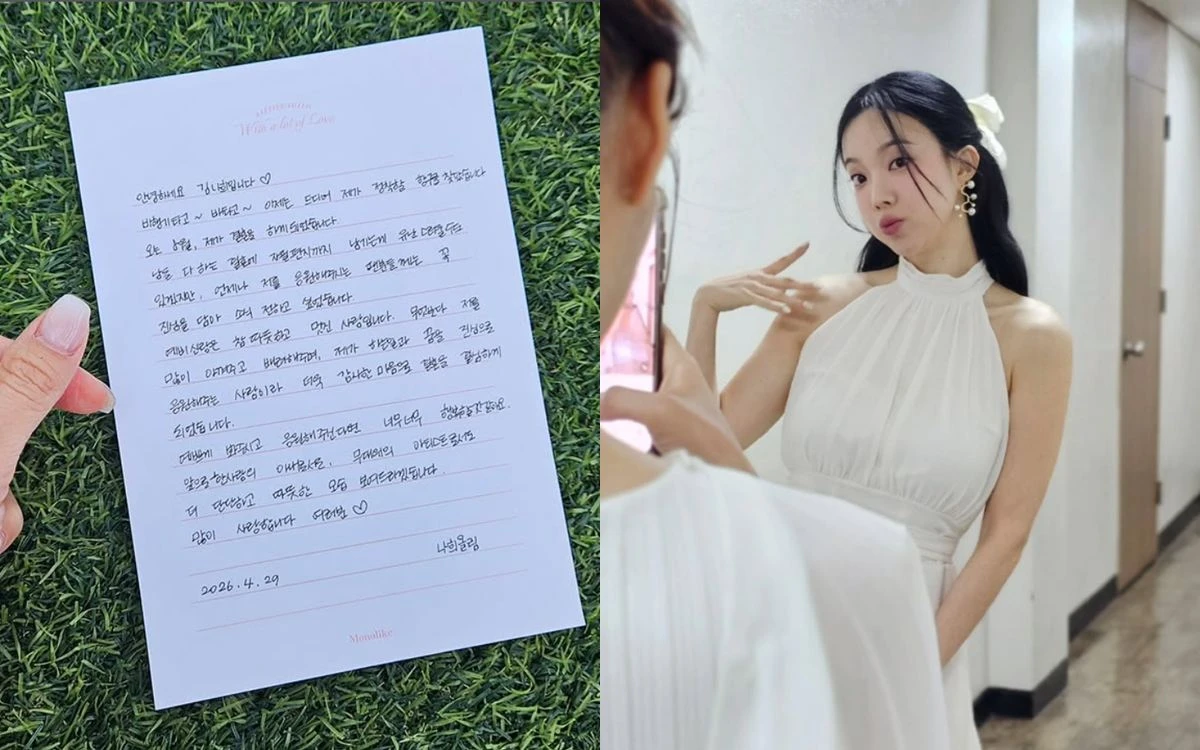 With a lot of Love
안녕하세요 김나희입니다 ♡
비행기타고~ 배타고~ 이제는 드디어 제가 정착할 항구를 찾았습니다
오는 9월, 제가 결혼을 하게 되었습니다
남들 다 하는 결혼에 자필편지까지 남기는게 유난스러울수도
있겠지만, 언제나 저를 응원해주시는 팬분들께는 꼭
진심을 담아 소식 전하고 싶었습니다
예비신랑은 참 따뜻하고 멋진 사람입니다. 무엇보다 저를
많이 아껴주고 배려해주며, 제가 하는일과 꿈을 진심으로
응원해주는 사람이라 더욱 감사한 마음으로 결혼을 결심하게
되었습니다.
예쁘게 봐주시고 응원해주신다면 너무너무 행복할것같아요.
앞으로 한사람의 아내로서도, 무대위의 아티스트로서도
더 단단하고 따뜻한 모습 보여드리겠습니다.
많이 사랑합니다 여러분 ♡
나희올림
2026.4.29
Monolike